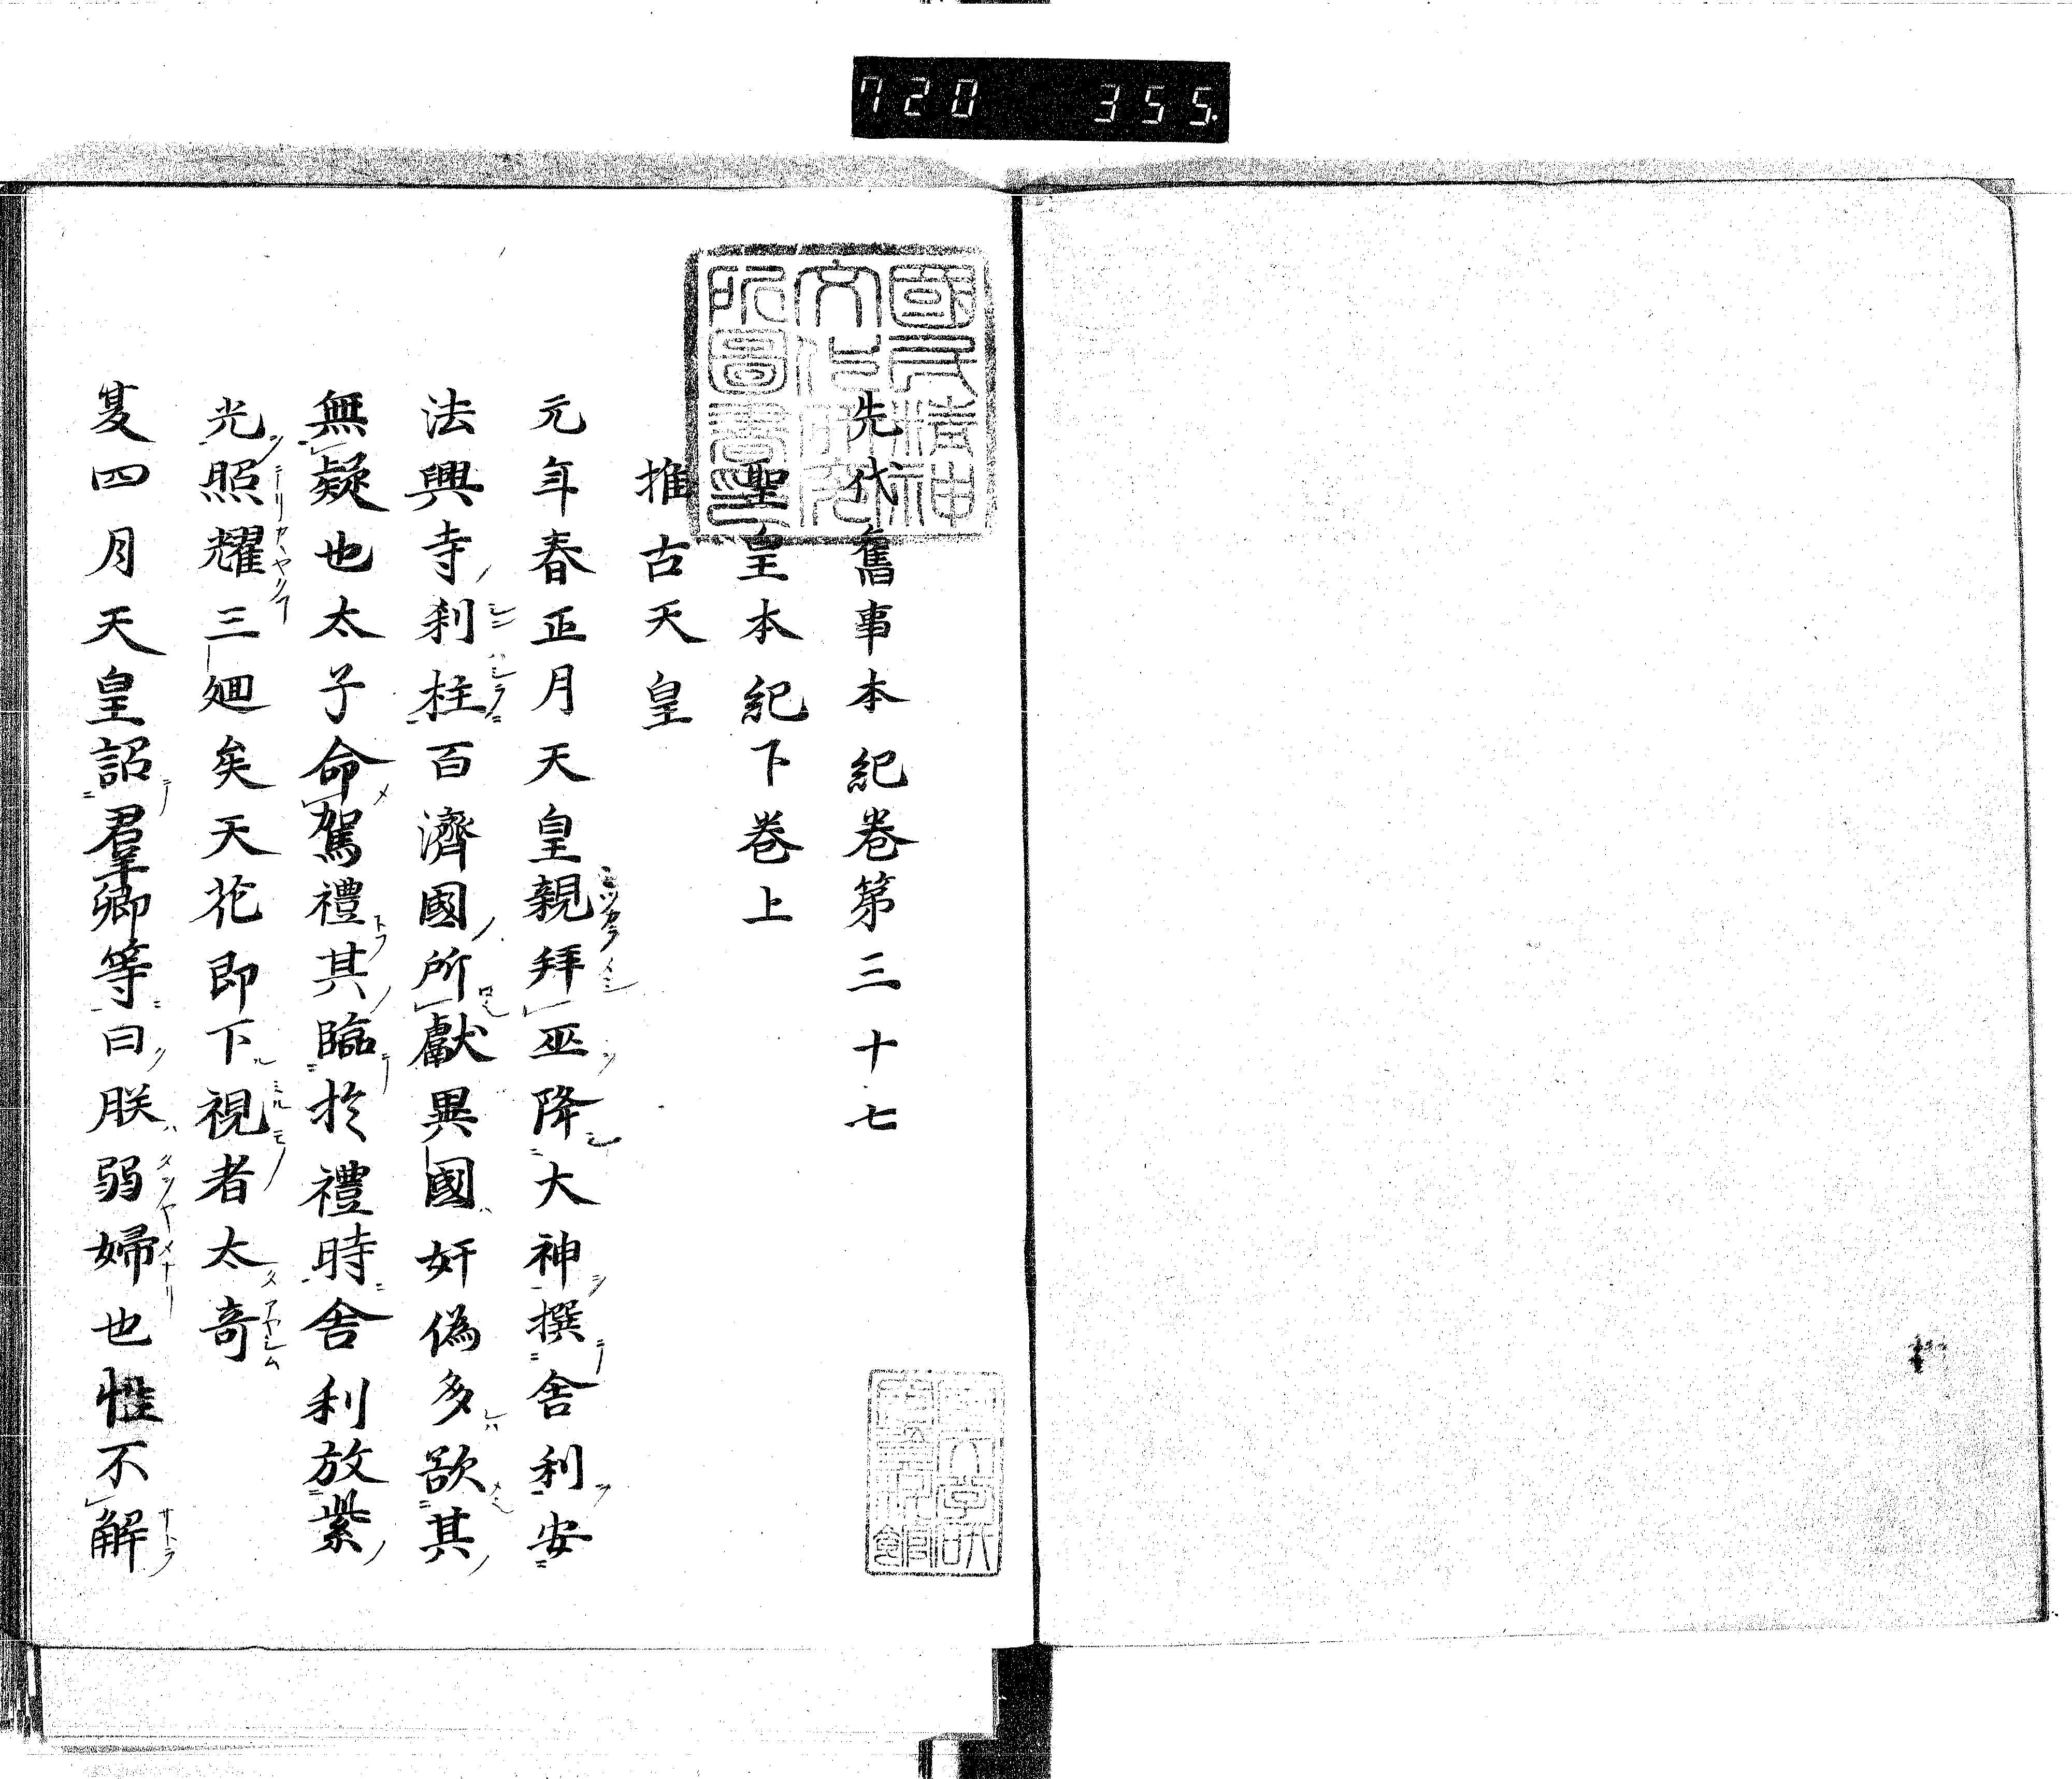 720 355.
先代舊事本紀卷第三十七
聖皇本紀下卷上
推古天皇
元年春正月天皇親拜巫降大神撰舍利安
法興寺刹柱百濟國所獻異國奸偽多欲其
無疑也太子命駕禮其臨於禮時舍利放紫
光照耀三廻矣天花即下視者太奇
夏四月天皇詔羣卿等曰朕弱婦也性不解
國民精神
文化研究
所圖書印